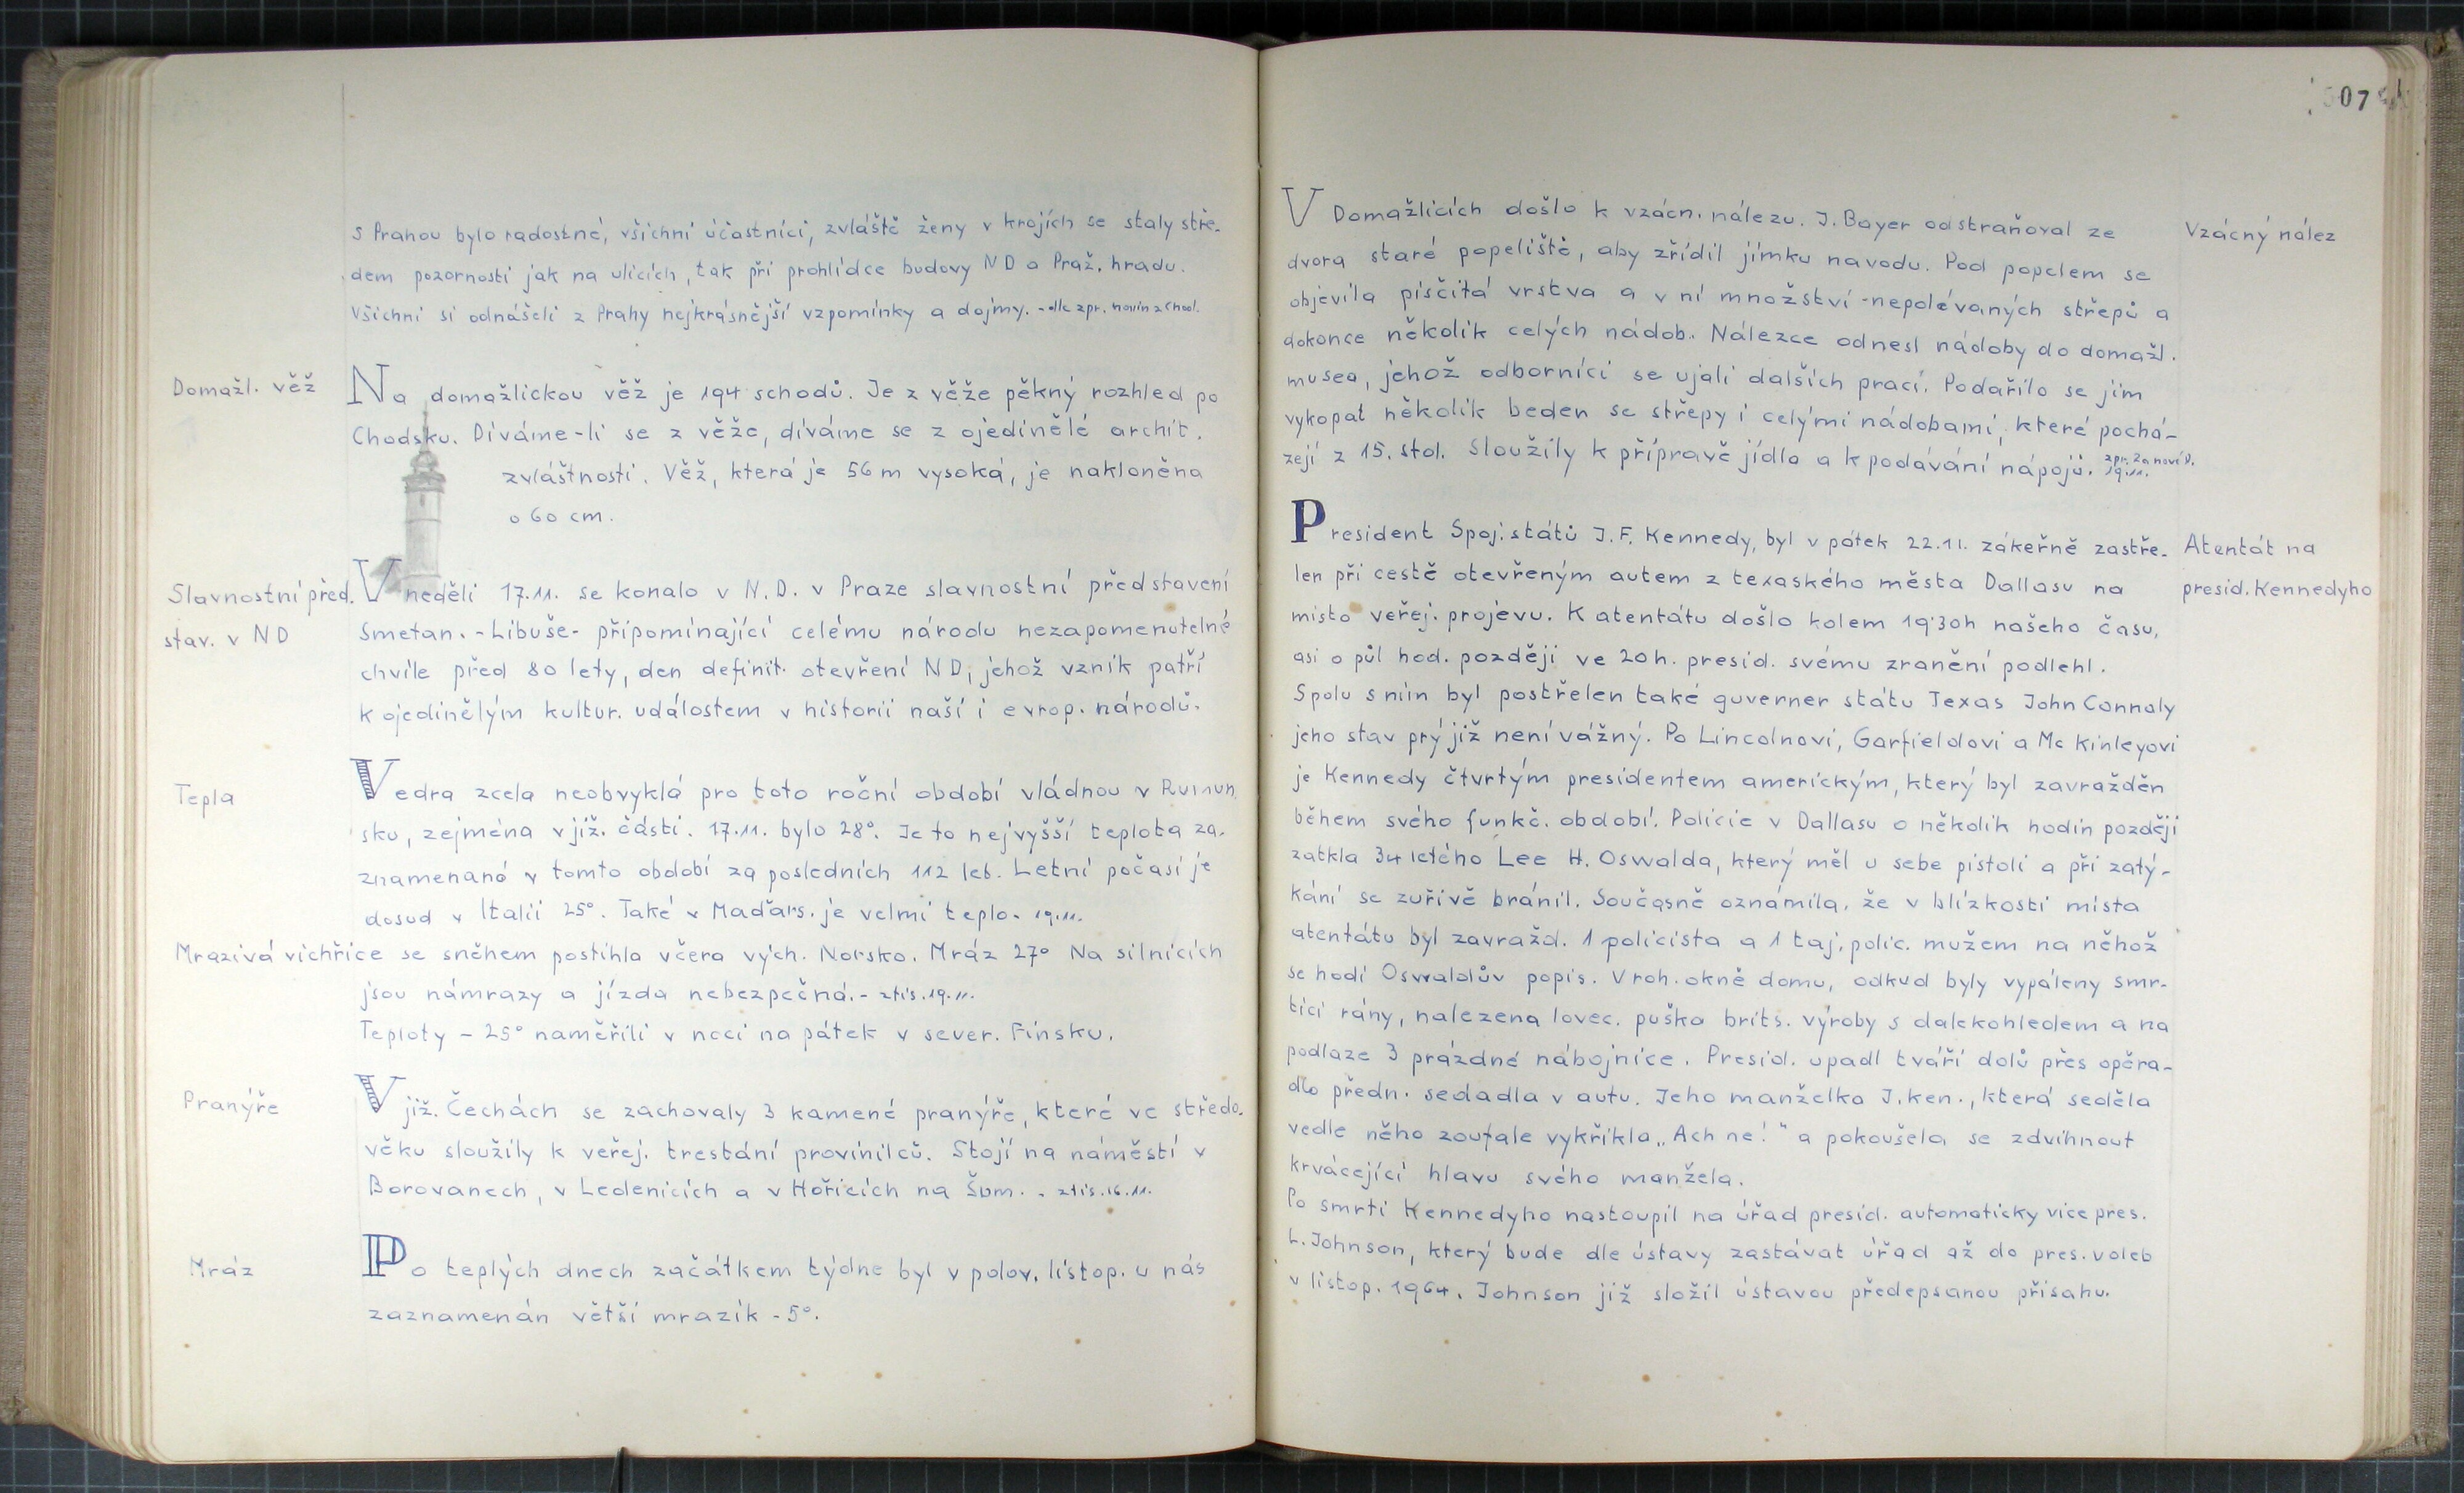 s Prahou bylo radostné, všichni účastníci, zvláště ženy v krojích se staly stře-
dem pozornosti jak na ulicích, tak při prohlídce budovy ND a Praž. hradu.
Všichni si odnášeli z Prahy nejkrásnější vzpomínky a dojmy. - dle zpr. novin z Chod.
Domažl. věž
Na domažlickou věž je 194 schodů. Je z věže pěkný rozhled po
Chodsku. Díváme-li se z věže, díváme se z ojedinělé archit.
zvláštnosti. Věž, která je 56 m vysoká, je nakloněna
o 60 cm.
Slavnostní před.
stav. v ND
V neděli 17.11. se konalo v N.D. v Praze slavnostní představení
Smetan. - Libuše - připomínající celému národu nezapomenutelné
chvíle před 80 lety, den definit. otevření ND, jehož vznik patří
k ojedinělým kultur. událostem v historii naší i evrop. národů.
Tepla
Vedra zcela neobvyklá pro toto roční období vládnou v Rumun.
sku, zejména v již. části. 17.11. bylo 28°. Je to nejvyšší teplota za-
znamenaná v tomto období za posledních 112 let. Letní počasí je
dosud v Italii 25°. Také v Maďars. je velmi teplo. 19.11.
Mrazivá vichřice se sněhem postihla včera vých. Norsko. Mráz 27° Na silnicích
jsou námrazy a jízda nebezpečná. - z tis. 19.11.
Teploty - 25° naměřili v noci na pátek v sever. Finsku.
Pranýře
V již. Čechách se zachovaly 3 kamené pranýře, které ve středo.
věku sloužily k veřej. trestání provinilců. Stojí na náměstí v
Borovanech, v Ledenicích a v Hořicích na Šum. - z tis. 16.11.
Mráz
Po teplých dnech začátkem týdne byl v polov. listop. u nás
zaznamenán větší mrazík - 5°.
07
V Domažlicích došlo k vzácn. nálezu. J. Bayer odstraňoval ze
dvora staré popeliště, aby zřídil jímku na vodu. Pod popelem se
objevila písčitá vrstva a v ní množství - nepolévaných střepů a
dokonce několik celých nádob. Nálezce odnesl nádoby do domažl.
musea, jehož odborníci se ujali dalších prací. Podařilo se jim
vykopat několik beden se střepy i celými nádobami, které pochá-
zejí z 15. stol. Sloužily k přípravě jídla a k podávání nápojů. zpr. Za nový D. 19.11.
Vzácný nález
President Spoj. států J.F. Kennedy, byl v pátek 22.11. zákeřně zastře-
len při cestě otevřeným autem z texaského města Dallasu na
místo veřej. projevu. K atentátu došlo kolem 19'30h našeho času,
asi o půl hod. později ve 20h. presid. svému zranění podlehl.
Spolu s ním byl postřelen také guverner státu Texas John Connaly
jeho stav prý již není vážný. Po Lincolnovi, Garfieldovi a Mc Kinleyovi
je Kennedy čtvrtým presidentem americkým, který byl zavražděn
během svého funkč. období. Policie v Dallasu o několik hodin později
zatkla 34 letého Lee H. Oswalda, který měl u sebe pistoli a při zatý-
kání se zuřivě bránil. Současně oznámila, že v blízkosti místa
atentátu byl zavražd. 1 policista a 1 taj. polic. mužem na něhož
se hodí Oswaldův popis. V roh. okně domu, odkud byly vypáleny smr-
tící rány, nalezena lovec. puška brits. výroby s dalekohledem a na
podlaze 3 prázdné nábojnice. Presid. upadl tváří dolů přes opěra-
dlo předn. sedadla v autu. Jeho manželka J. Ken., která seděla
vedle něho zoufale vykřikla „Ach ne!" a pokoušela se zdvihnout
krvácející hlavu svého manžela.
Po smrti Kennedyho nastoupil na úřad presid. automaticky vice pres.
L. Johnson, který bude dle ústavy zastávat úřad až do pres. voleb
v listop. 1964. Johnson již složil ústavou předepsanou přísahu.
Atentát na
presid. Kennedyho